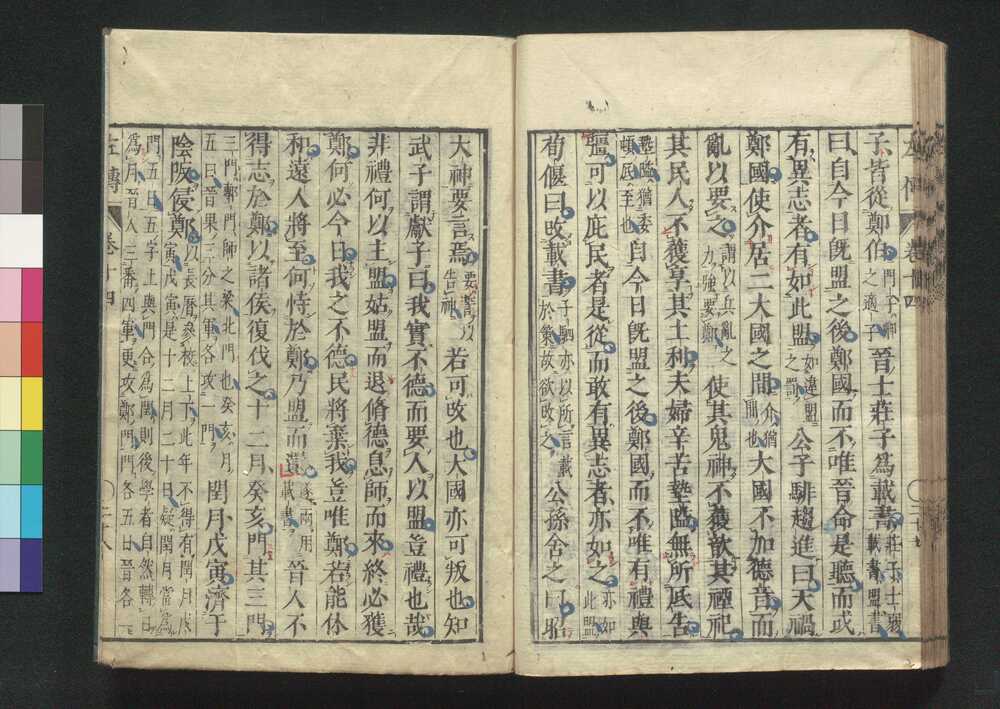 左傳 卷十四 二十七
子皆從鄭伯門子卿之適子晉士莊子爲載書莊子士弱載書盟書
曰自今日旣盟之後鄭國而不唯晉命是聽而或
有異志者有如此盟如違盟之罰公子騑趨進曰天禍
鄭國使介居二大國之間介猶間也大國不加德音而
亂以要之謂以兵亂之力強要鄭使其鬼神不獲歆其禋祀
其民人不獲享其土利夫婦辛苦墊隘無所厎告
墊隘猶委頓厎至也自今日旣盟之後鄭國而不唯有禮與
彊可以庇民者是從而敢有異志者亦如之亦如此盟
荀偃曰改載書子駟亦以所言載於策故欲改之公孫舍之曰昭
大神要言焉要誓以告神若可改也大國亦可叛也知
武子謂獻子曰我實不德而要人以盟豈禮也哉
非禮何以主盟姑盟而退脩德息師而來終必獲
鄭何必今日我之不德民將棄我豈唯鄭若能休
和遠人將至何恃於鄭乃盟而還遂兩用載書晉人不
得志於鄭以諸侯復伐之十二月癸亥門其三門
三門鄟門師之梁北門也癸亥月五日晉果三分其軍各攻一門閏月戊寅濟于
陰阪侵鄭以長曆參校上下此年不得有閏月戊寅戊寅是十二月二十日疑閏月當爲
門五日五字上與門合爲閏則後學者自然轉日爲月晉人三番四軍更攻鄭門門各五日晉各一
左傳 卷十四 二十八